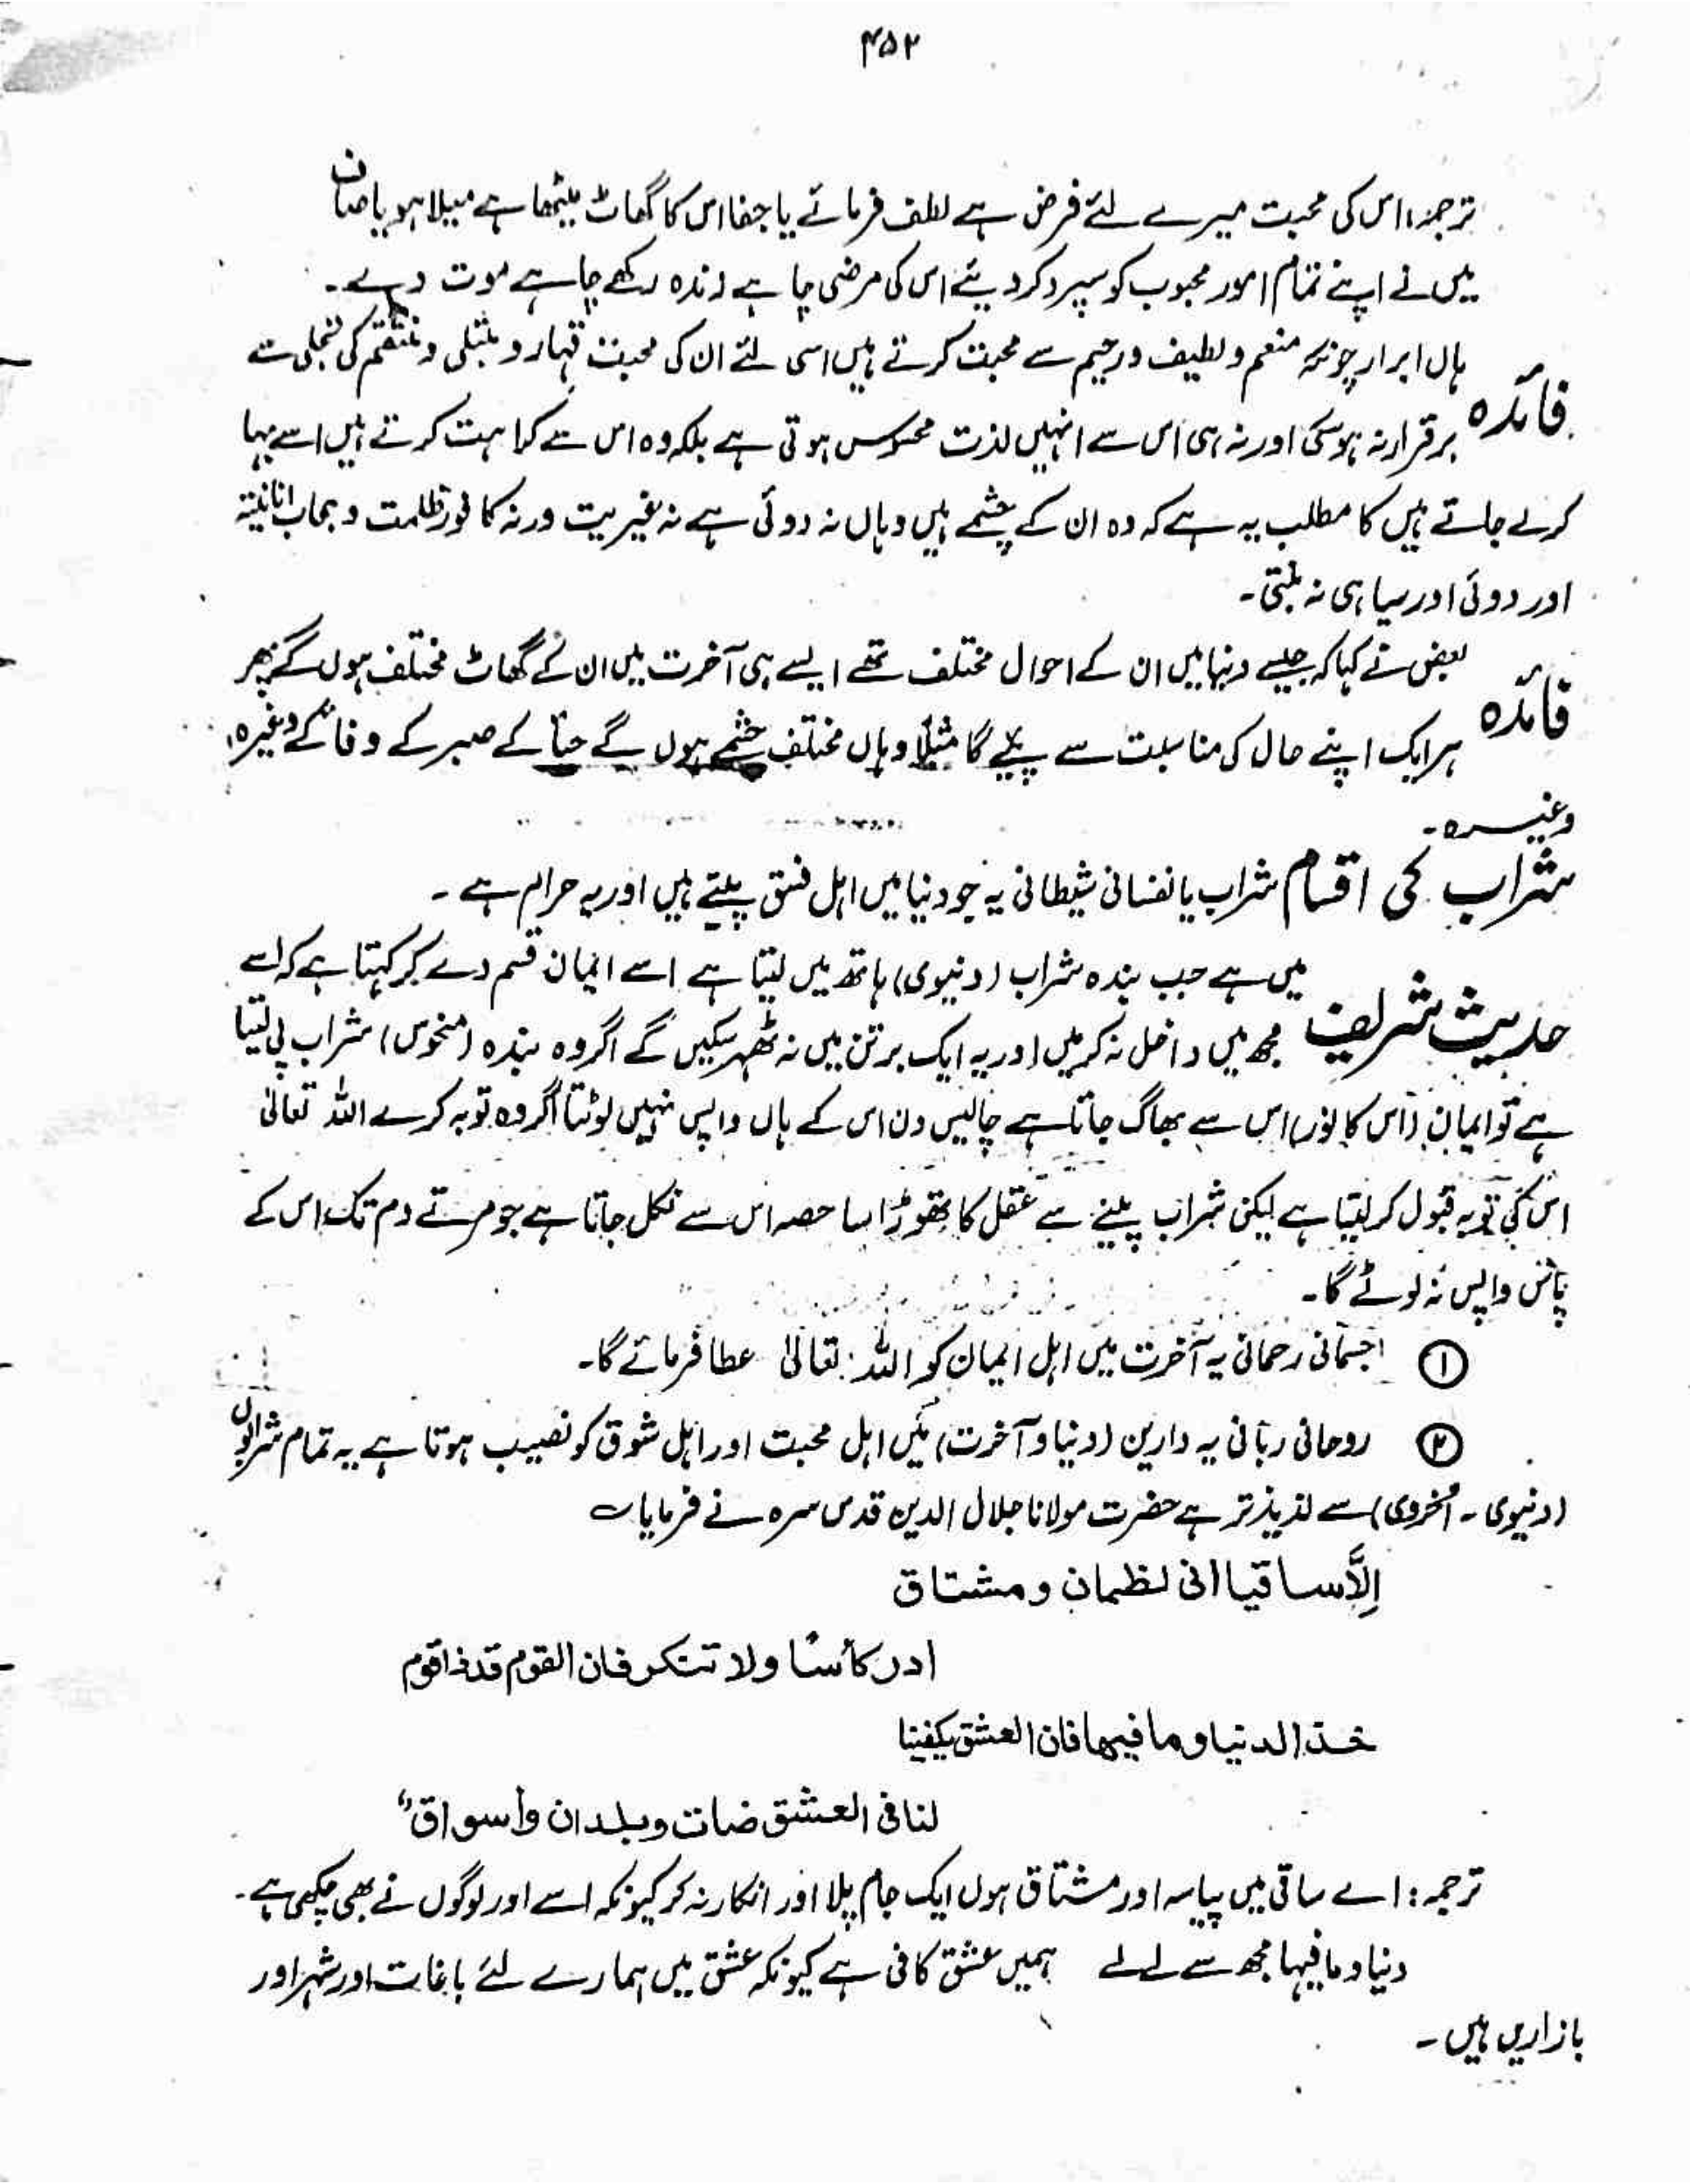 ۴۵۲
ترجمہ: اس کی محبت میرے لئے فرض ہے لطف فرمائے یا جفا اس کا گھاٹ میٹھا ہے میلا ہو یا صاف
میں نے اپنے تمام امور محبوب کو سپرد کر دیئے اس کی مرضی چاہے زندہ رکھے چاہے موت دے۔
فائدہ ہاں ابرار چونکہ منعم و لطیف و رحیم سے محبت کرتے ہیں اسی لئے ان کی محبت قہار و مبتلی و منتقم کی تجلی سے
برقرار نہ ہوسکی اور نہ ہی اس سے انہیں لذت محسوس ہوتی ہے بلکہ وہ اس سے کراہت کرتے ہیں اسے بہا
کر لے جاتے ہیں کا مطلب یہ ہے کہ وہ ان کے چشمے ہیں وہاں نہ دوئی ہے نہ غیریت ورنہ کا نور ظلمت و حجاب انانیۃ
اور دوئی اور سیاہی نہ بنتی۔
فائدہ بعض نے کہا کہ جیسے دنیا میں ان کے احوال مختلف تھے ایسے ہی آخرت میں ان کے گھاٹ مختلف ہوں گے پھر
ہر ایک اپنے حال کی مناسبت سے پیئے گا مثلاً وہاں مختلف چشمے ہوں گے حیا کے صبر کے وفا کے وغیرہ،
وغیرہ۔
شراب کی اقسام شراب یا نفسانی شیطانی یہ جو دنیا میں اہل فسق پیتے ہیں اور یہ حرام ہے۔
حدیث شریف میں ہے جب بندہ شراب (دنیوی) ہاتھ میں لیتا ہے اسے ایمان قسم دے کر کہتا ہے کہ اسے
مجھ میں داخل نہ کر میں اور یہ ایک برتن میں نہ ٹھہر سکیں گے اگر وہ بندہ (منحوس) شراب پی لیتا
ہے تو ایمان (اس کا نور) اس سے بھاگ جاتا ہے چالیس دن اس کے ہاں واپس نہیں لوٹتا اگر وہ توبہ کرے اللہ تعالیٰ
اس کی توبہ قبول کر لیتا ہے لیکن شراب پینے سے عقل کا تھوڑا سا حصہ اس سے نکل جاتا ہے جو مرتے دم تک اس کے
پاس واپس نہ لوٹے گا۔
① جسمانی رحمانی یہ آخرت میں اہل ایمان کو اللہ تعالیٰ عطا فرمائے گا۔
② روحانی ربانی یہ دارین (دنیا و آخرت) میں اہل محبت اور اہل شوق کو نصیب ہوتا ہے یہ تمام شرابوں
(دنیوی۔ اخروی) سے لذیذ تر ہے حضرت مولانا جلال الدین قدس سرہ نے فرمایا ؎
اِلَّاسا قیا انی لظمان و مشتاق
ادر کأسًا ولا تنکر فان القوم قد ذاقوم
خذ الدنیا وما فیھا فان العشق یکفینا
لنا فی العشق ضات وبلدان وأسواق
ترجمہ: اے ساقی میں پیاسہ اور مشتاق ہوں ایک جام پلا اور انکار نہ کر کیونکہ اسے اور لوگوں نے بھی چکھی ہے۔
دنیا و ما فیہا مجھ سے لے لے ہمیں عشق کافی ہے کیونکہ عشق میں ہمارے لئے باغات اور شہر اور
بازاریں ہیں۔